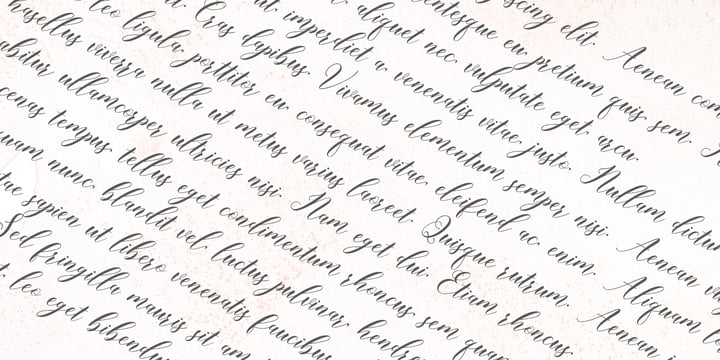 elit. Aenean
eu, pretium quis, sem.
aliquet nec, vulputate eget, arcu.
imperdiet a, venenatis vitae, justo. Nullam
Cras dapibus. Vivamus elementum semper nisi. Aenean
leo ligula, porttitor eu, consequat vitae, eleifend ac, enim. Aliquam
viverra nulla ut metus varius laoreet. Quisque rutrum. Aenean
ullamcorper ultricies nisi. Nam eget dui. Etiam rhoncus.
tempus, tellus eget condimentum rhoncus, sem
nunc, blandit vel, luctus pulvinar,
sapien ut libero venenatis faucibus.
Sed fringilla mauris sit
leo eget